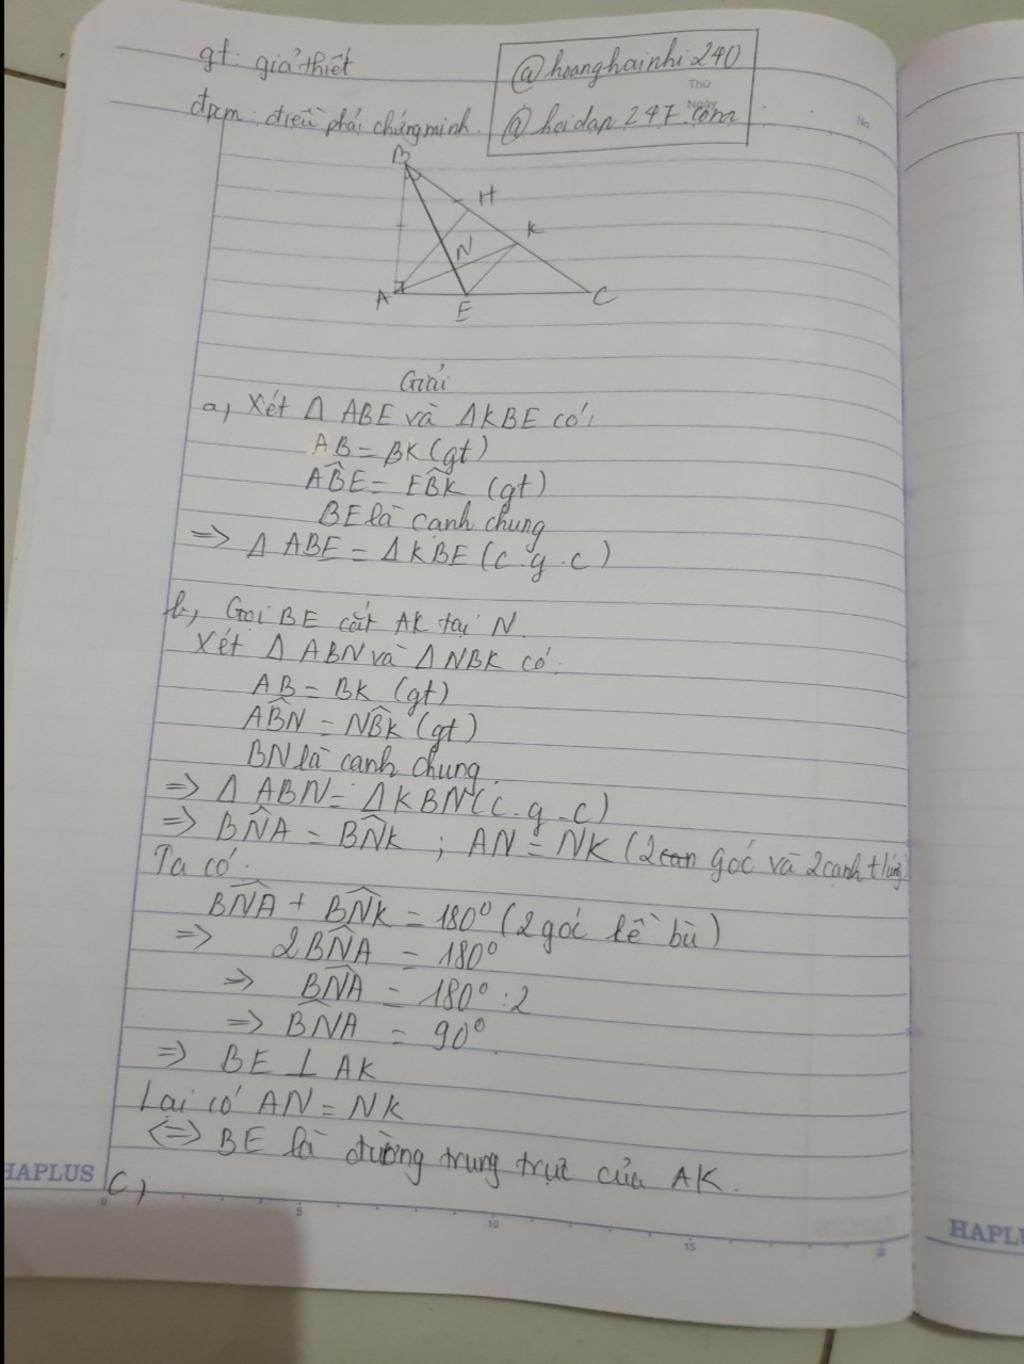 gt: giả thiết
@hoanghainhi240
đpcm: điều phải chứng minh.
@hoidap247.com
Thứ
Ngày
No
B
H
K
N
A
E
C
Giải
a, Xét Δ ABE và Δ KBE có:
AB = BK (gt)
ABÊ = EBK̂ (gt)
BE là cạnh chung
=> Δ ABE = Δ KBE (c.g.c)
b, Gọi BE cắt AK tại N.
Xét Δ ABN và Δ NBK có:
AB = BK (gt)
AB̂N = NB̂K (gt)
BN là cạnh chung.
=> Δ ABN = Δ KBN (c-g-c)
=> BN̂A = BN̂K ; AN = NK (2 góc và 2 cạnh t/ứng)
Ta có:
BN̂A + BN̂K = 180° (2 góc kề bù)
=> 2BN̂A = 180°
=> BN̂A = 180° : 2
=> BN̂A = 90°
=> BE ⊥ AK
Lại có AN = NK
<=> BE là đường trung trực của AK.
HAPLUS
c,
0 5 10 15 20
HAPLU